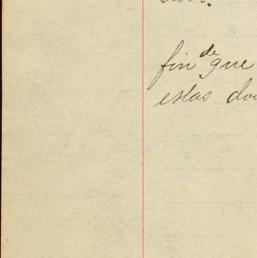 fin de que
estas do